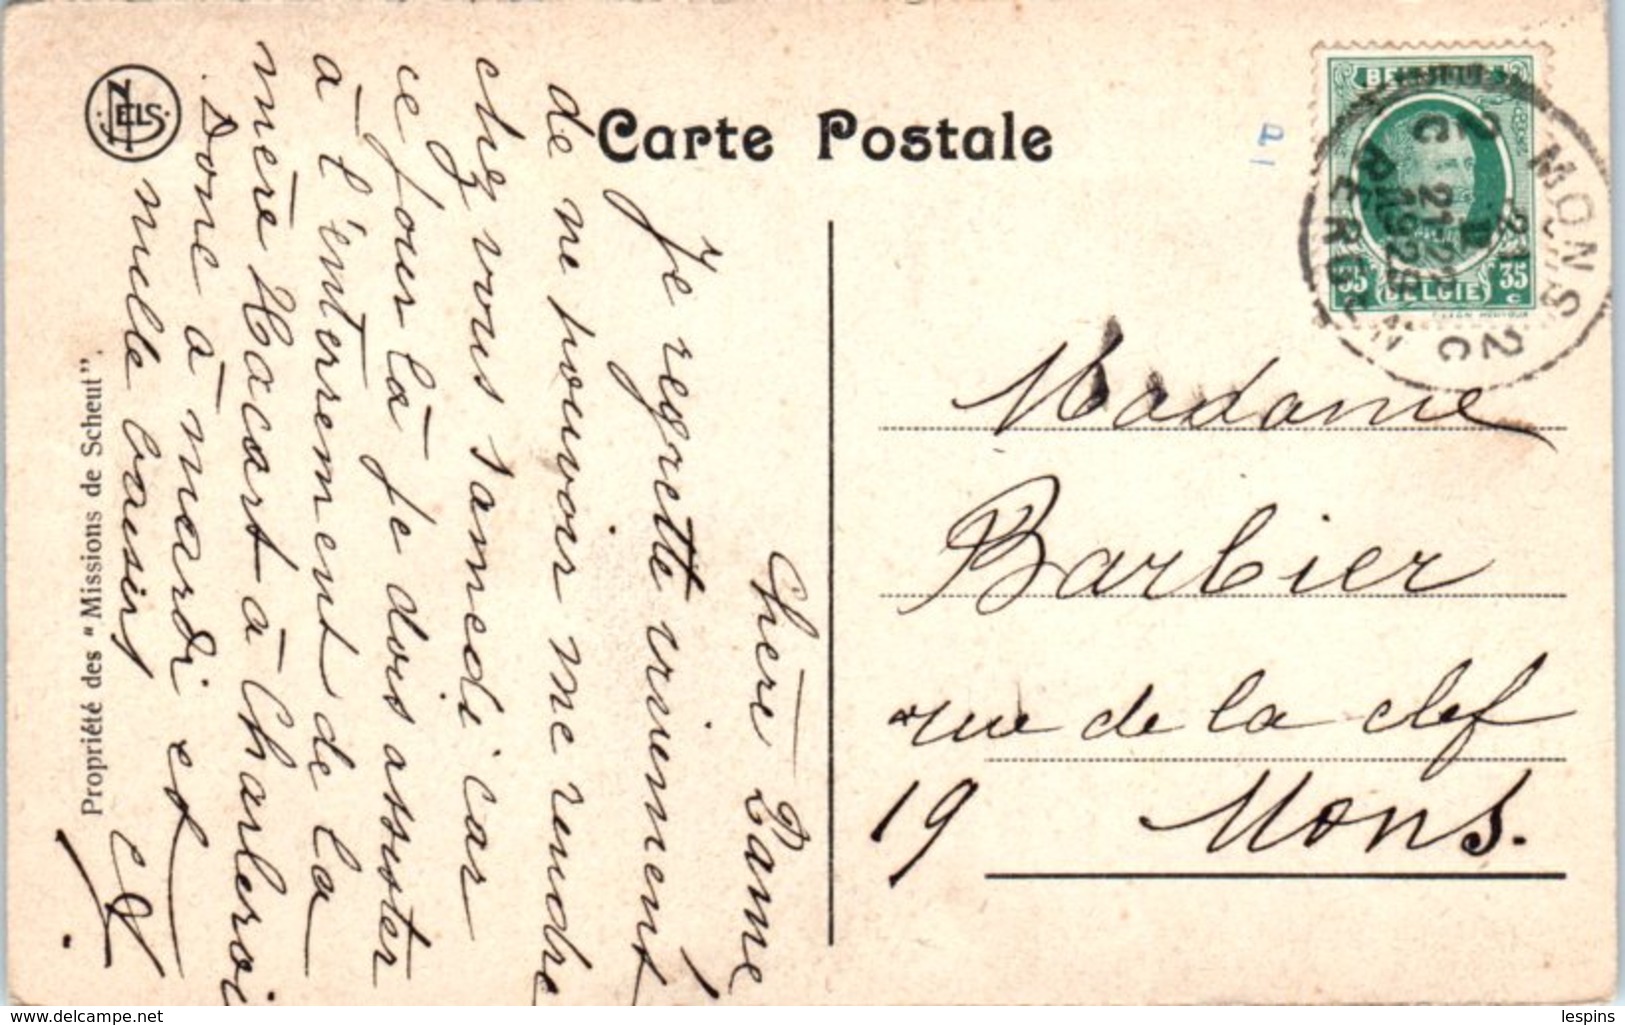 Carte Postale
NELS
Propriété des "Missions de Scheut".
Chère Dame
Je regrette vivement
de ne pouvoir me rendre
chez vous samedi car
ce jour là je dois assister
à l'enterrement de la
mère Hacart à Charleroi
Donc à mardi et
mille baisers
BELGIE
35 c
MONS 2C
21-22
1928
BERGEN 2C
Madame
Barbier
rue de la clef
19 Mons.
lespins
www.delcampe.net